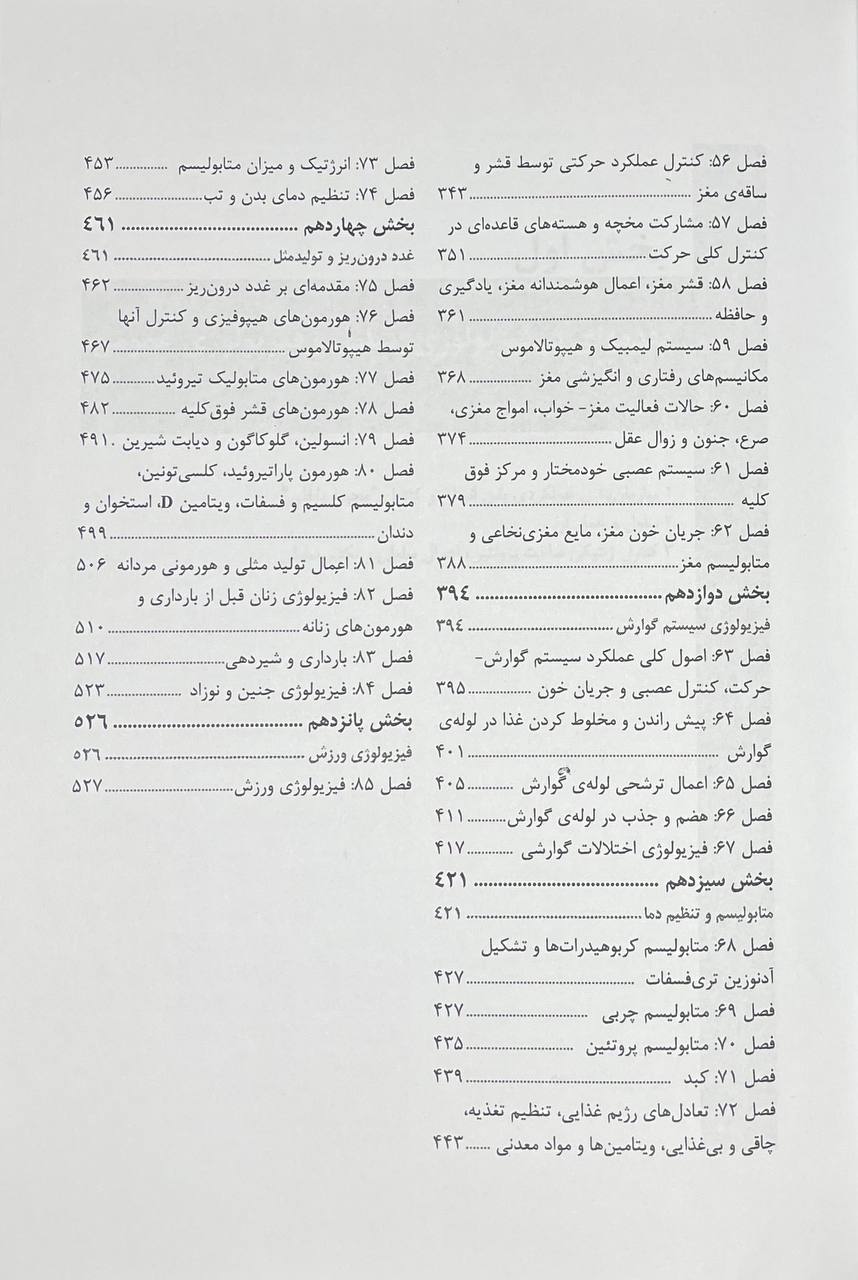 فصل ۵۶: کنترل عملکرد حرکتی توسط قشر و
ساقه‌ی مغز ..................................................... ۳۴۳
فصل ۵۷: مشارکت مخچه و هسته‌های قاعده‌ای در
کنترل کلی حرکت ........................................... ۳۵۱
فصل ۵۸: قشر مغز، اعمال هوشمندانه مغز، یادگیری
و حافظه .......................................................... ۳۶۱
فصل ۵۹: سیستم لیمبیک و هیپوتالاموس
مکانیسم‌های رفتاری و انگیزشی مغز ............... ۳۶۸
فصل ۶۰: حالات فعالیت مغز- خواب، امواج مغزی،
صرع، جنون و زوال عقل .................................. ۳۷۴
فصل ۶۱: سیستم عصبی خودمختار و مرکز فوق
کلیه ................................................................ ۳۷۹
فصل ۶۲: جریان خون مغز، مایع مغزی‌نخاعی و
متابولیسم مغز .................................................. ۳۸۸
بخش دوازدهم ....................................... ۳۹٤
فیزیولوژی سیستم گوارش .......................................... ۳۹٤
فصل ۶۳: اصول کلی عملکرد سیستم گوارش-
حرکت، کنترل عصبی و جریان خون ............... ۳۹۵
فصل ۶۴: پیش راندن و مخلوط کردن غذا در لوله‌ی
گوارش ............................................................ ۴۰۱
فصل ۶۵: اعمال ترشحی لوله‌ی گوارش ........... ۴۰۵
فصل ۶۶: هضم و جذب در لوله‌ی گوارش ......... ۴۱۱
فصل ۶۷: فیزیولوژی اختلالات گوارشی ........... ۴۱۷
بخش سیزدهم ....................................... ٤۲۱
متابولیسم و تنظیم دما .......................................... ٤۲۱
فصل ۶۸: متابولیسم کربوهیدرات‌ها و تشکیل
آدنوزین تری‌فسفات ........................................ ۴۲۷
فصل ۶۹: متابولیسم چربی ............................. ۴۲۷
فصل ۷۰: متابولیسم پروتئین .......................... ۴۳۵
فصل ۷۱: کبد ................................................. ۴۳۹
فصل ۷۲: تعادل‌های رژیم غذایی، تنظیم تغذیه،
چاقی و بی‌غذایی، ویتامین‌ها و مواد معدنی ...... ۴۴۳
فصل ۷۳: انرژتیک و میزان متابولیسم ............. ۴۵۳
فصل ۷۴: تنظیم دمای بدن و تب ..................... ۴۵۶
بخش چهاردهم ..................................... ٤٦۱
غدد درون‌ریز و تولیدمثل ...................................... ٤٦۱
فصل ۷۵: مقدمه‌ای بر غدد درون‌ریز ................. ۴۶۲
فصل ۷۶: هورمون‌های هیپوفیزی و کنترل آنها
توسط هیپوتالاموس ......................................... ۴۶۷
فصل ۷۷: هورمون‌های متابولیک تیروئید .......... ۴۷۵
فصل ۷۸: هورمون‌های قشر فوق‌کلیه ............... ۴۸۲
فصل ۷۹: انسولین، گلوکاگون و دیابت شیرین . ۴۹۱
فصل ۸۰: هورمون پاراتیروئید، کلسی‌تونین،
متابولیسم کلسیم و فسفات، ویتامین D، استخوان و
دندان ............................................................... ۴۹۹
فصل ۸۱: اعمال تولید مثلی و هورمونی مردانه ۵۰۶
فصل ۸۲: فیزیولوژی زنان قبل از بارداری و
هورمون‌های زنانه .............................................. ۵۱۰
فصل ۸۳: بارداری و شیردهی ............................ ۵۱۷
فصل ۸۴: فیزیولوژی جنین و نوزاد .................. ۵۲۳
بخش پانزدهم ....................................... ٥۲٦
فیزیولوژی ورزش ................................................ ٥۲٦
فصل ۸۵: فیزیولوژی ورزش ............................... ۵۲۷